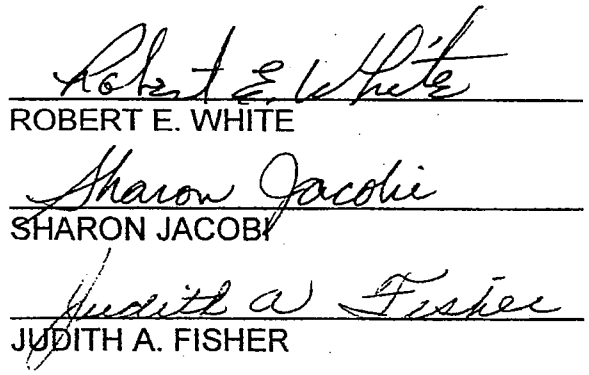 Robert E. White
ROBERT E. WHITE
Sharon Jacobi
SHARON JACOBI
Judith A Fisher
JUDITH A. FISHER